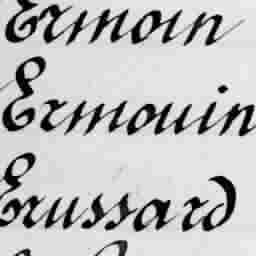 Ermoin
Ermouin
Erussard